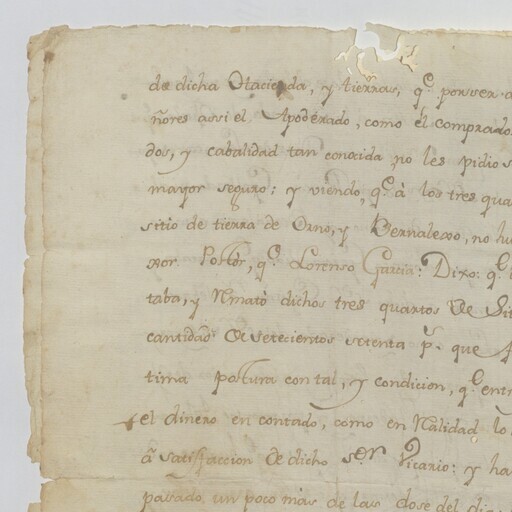 de dicha Hacienda, y tierras, q.e por ser a
ñores assi el Apoderado, como el comprado
dos, y cabalidad tan conocida no les pidio s
mayor seguro: y viendo, q.e à los tres qua
sitio de tierra de Orno, y Bernalexo, no hu
xor Postór, q.e Lorenso Garcia: Dixo: q.e
taba, y Rmató dichos tres quartos de Sit
cantidad de setecientos setenta p.s que
tima postura con tal, y condicion, q.e entr
el dinero en contado, como en Ralidad lo
à satisfaccion de dicho s.or Vicario: y ha
passado un poco mas de las dose del dia